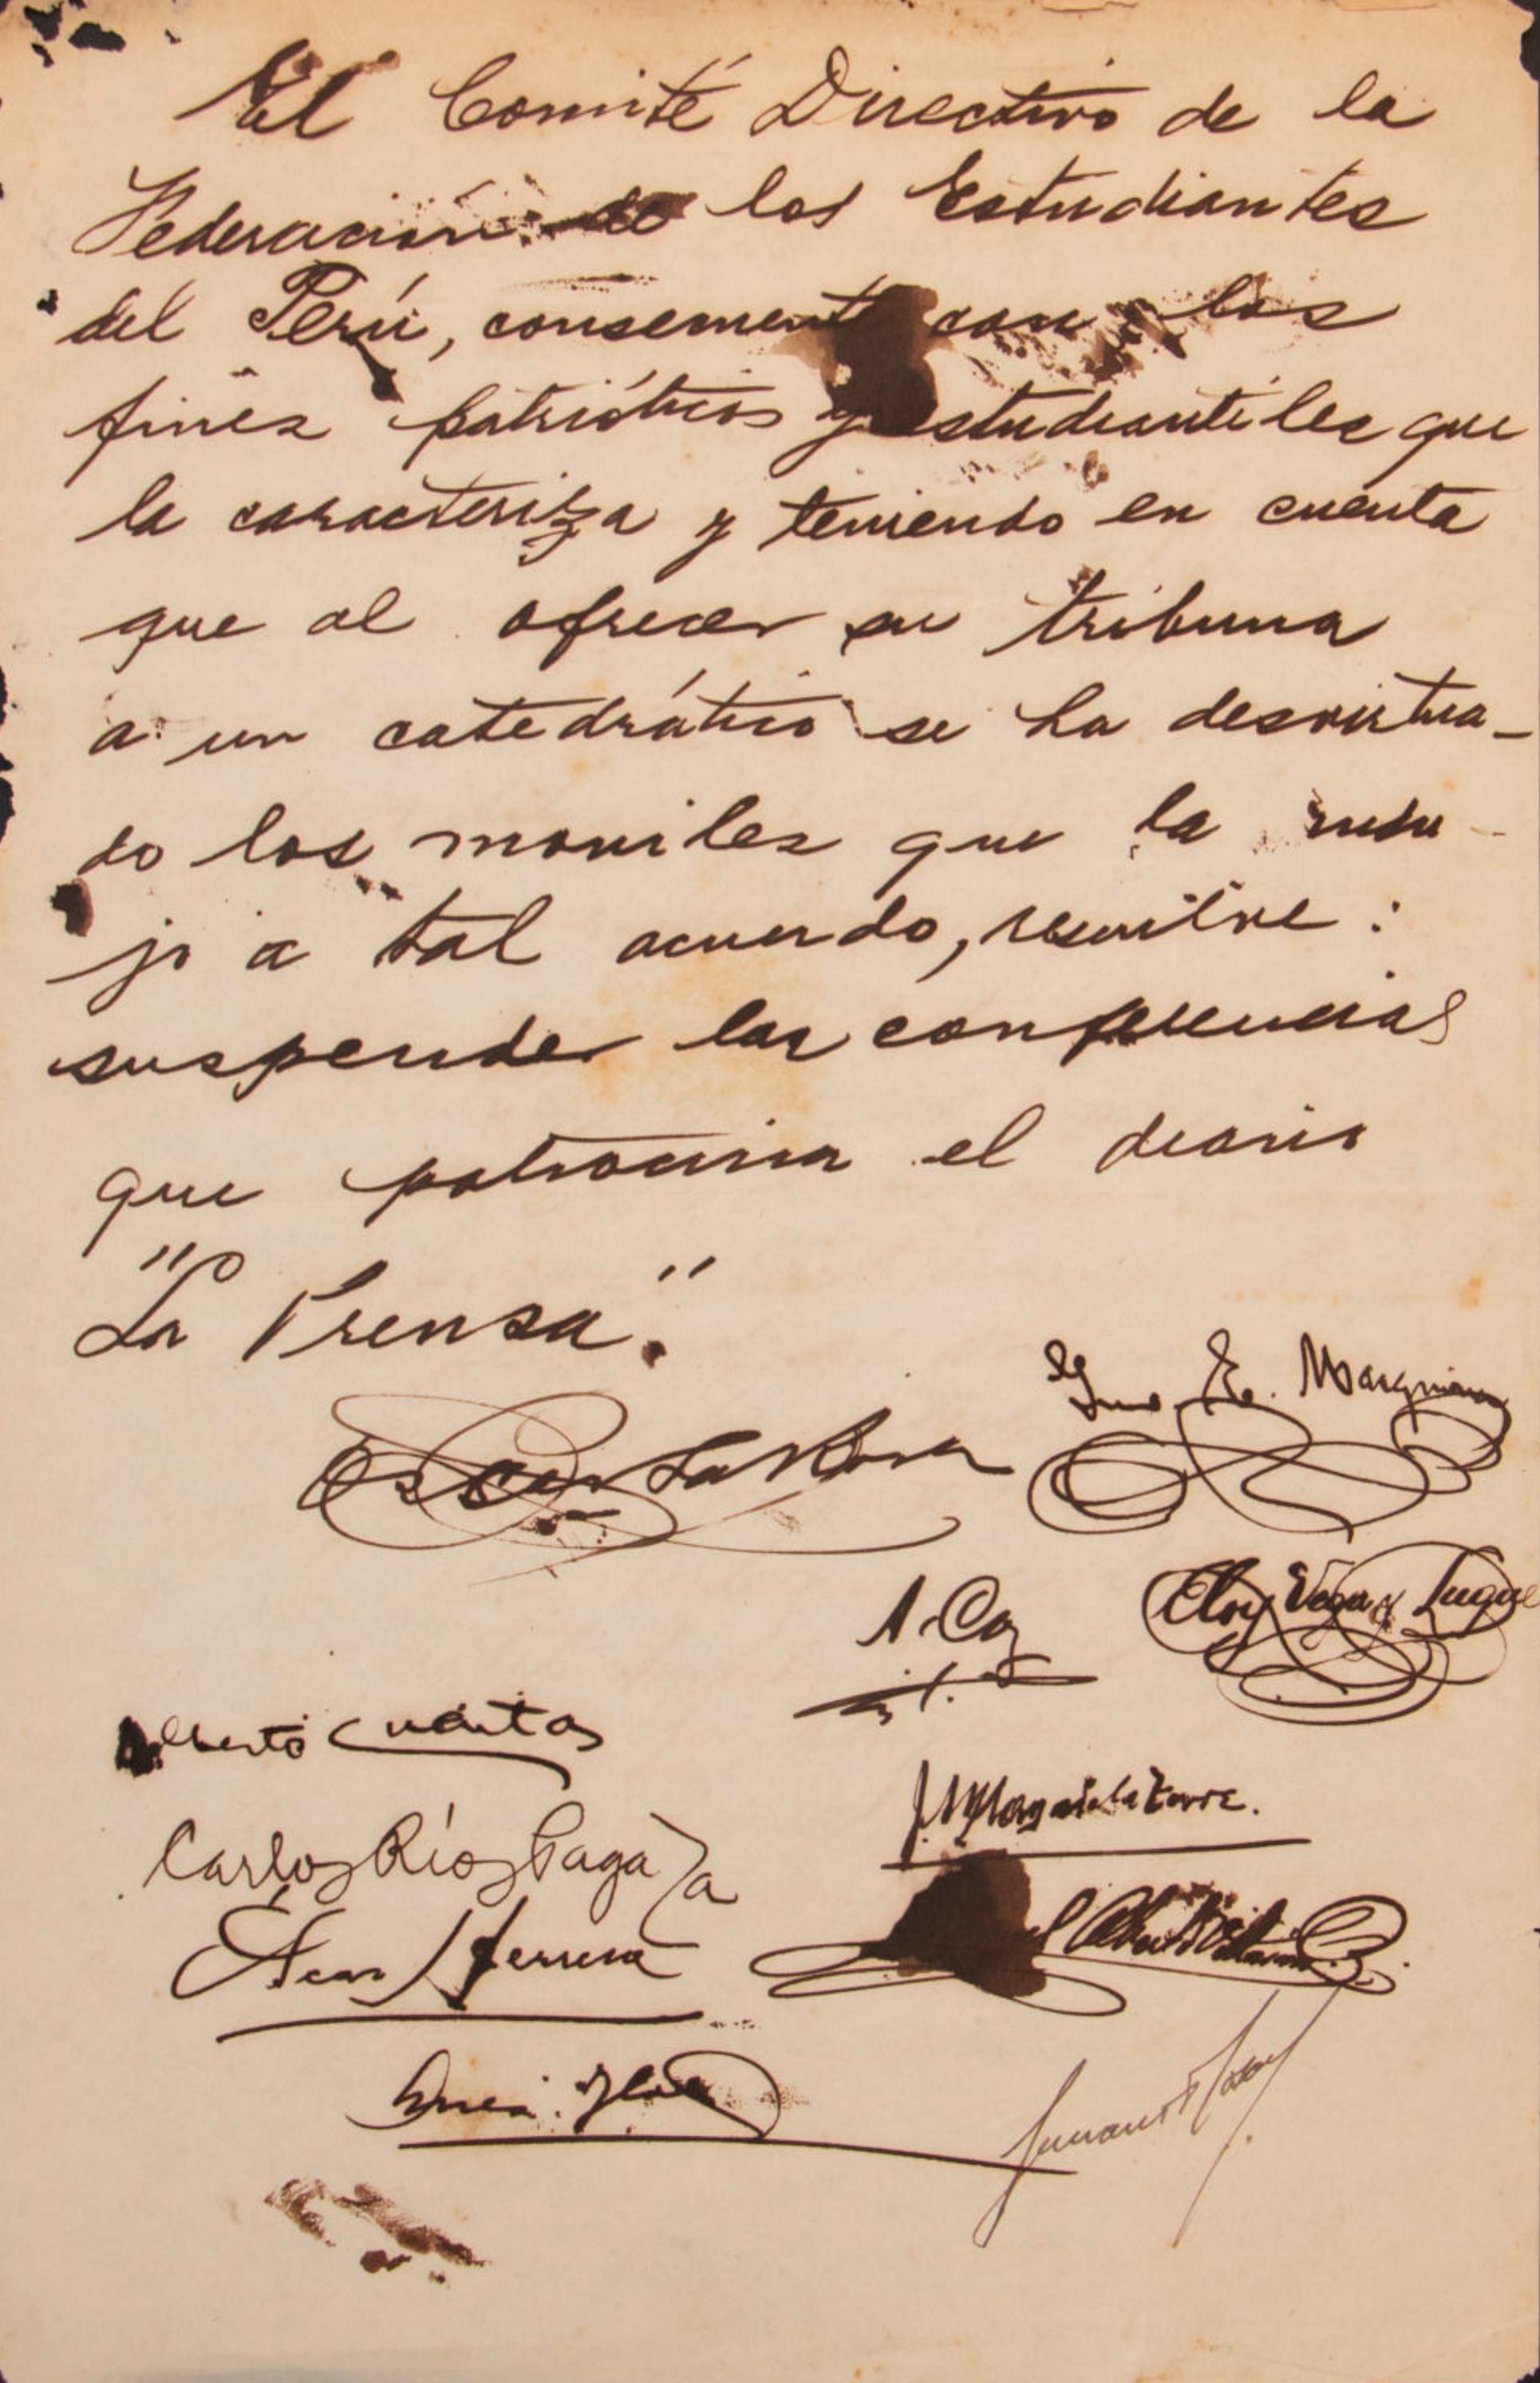 El Comité Directivo de la
Federación de los Estudiantes
del Perú, consemente con los
fines patrióticos y estudiantiles que
la caracteriza y teniendo en cuenta
que al ofrecer su tribuna
a un catedrático se ha desvirtua-
do los moviles que la indu-
jo a tal acuerdo, resuelve:
suspender las conferencias
que patrocina el diario
"La Prensa".
E. Marquina
Oscar La Rosa
A. Coz
Eloy Vega y Luque
Alberto Cuentas
de la Torre.
Carlos Ríos Pagaza
Herrera